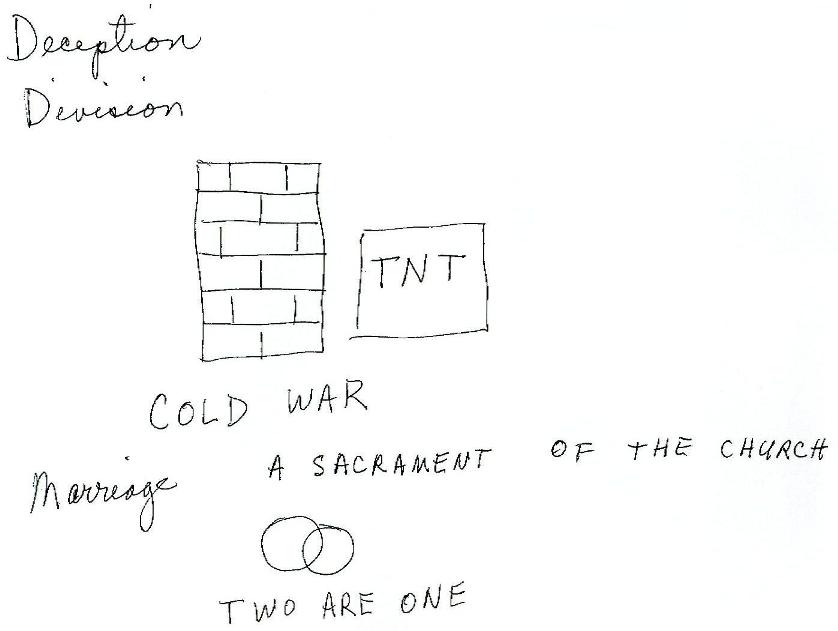 Deception
Division
TNT
COLD WAR
Marriage A SACRAMENT OF THE CHURCH
TWO ARE ONE